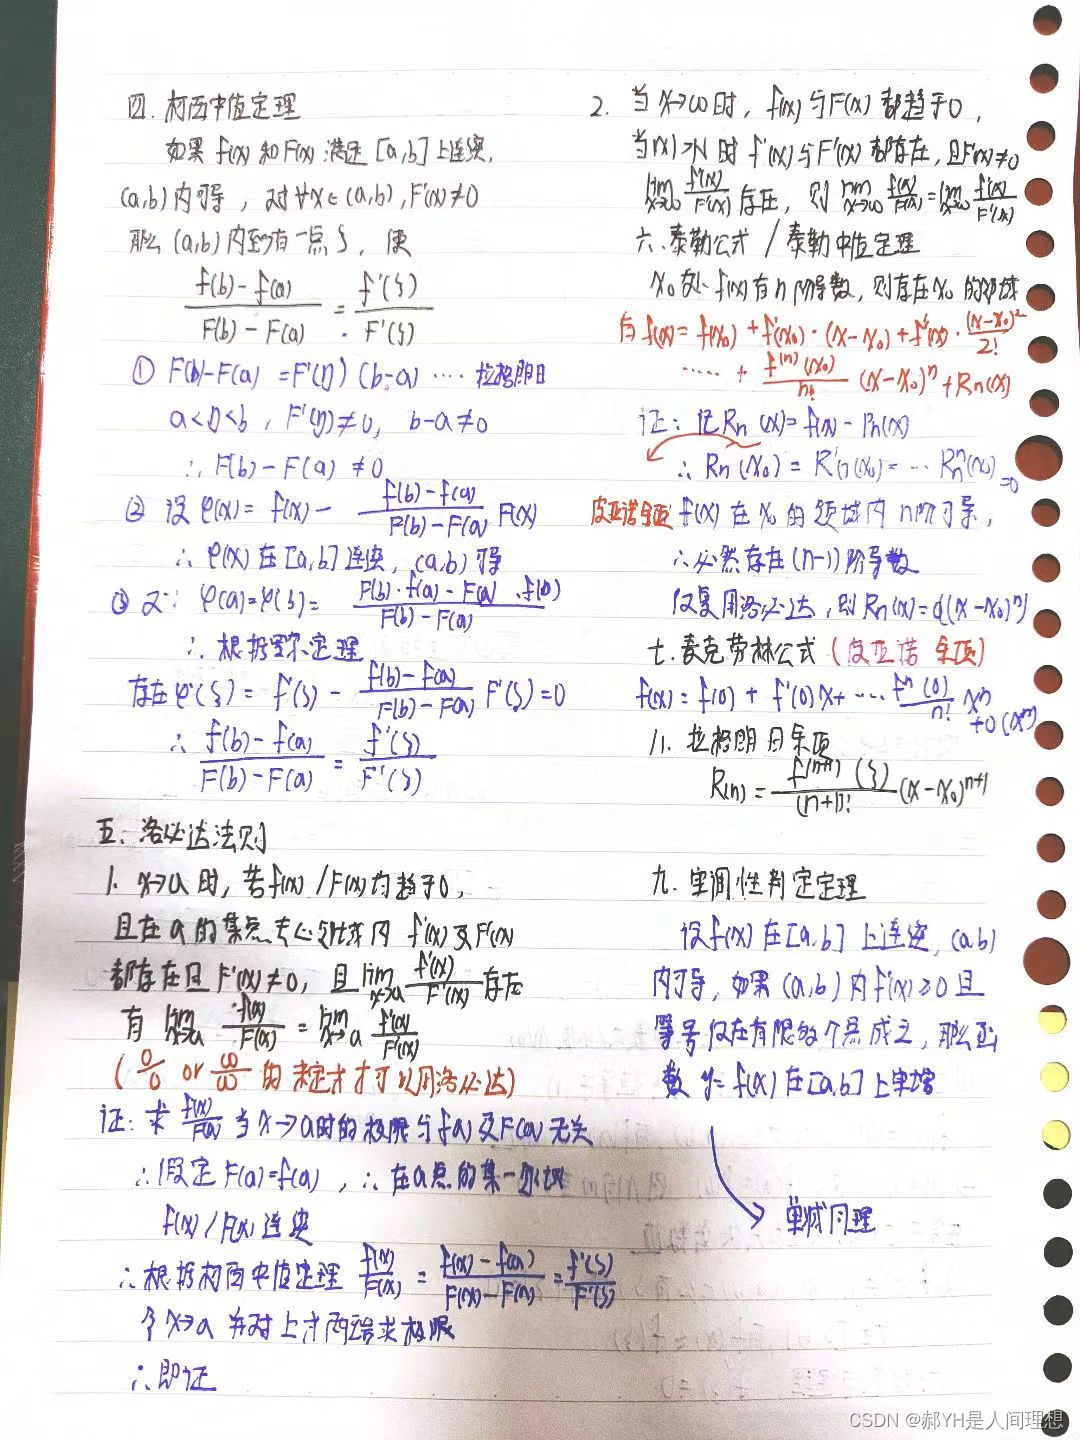 四. 柯西中值定理
如果 f(x) 和 F(x) 满足 [a,b] 上连续,
(a,b) 内可导, 对∀x∈(a,b), F'(x)≠0
那么 (a,b) 内至少有一点 ξ, 使
\frac{f(b)-f(a)}{F(b)-F(a)} = \frac{f'(ξ)}{F'(ξ)}
① F(b)-F(a) = F'(η)(b-a) ···· 拉格朗日
a<η<b, F'(η)≠0, b-a≠0
∴ F(b)-F(a) ≠0
② 设 φ(x)= f(x) - \frac{f(b)-f(a)}{F(b)-F(a)} F(x)
∴ φ(x) 在 [a,b] 连续, (a,b) 可导
③ 又∵ φ(a)=φ(b)= \frac{F(b)·f(a)-F(a)·f(b)}{F(b)-F(a)}
∴ 根据罗尔定理
存在 φ'(ξ) = f'(ξ) - \frac{f(b)-f(a)}{F(b)-F(a)} F'(ξ)=0
∴ \frac{f(b)-f(a)}{F(b)-F(a)} = \frac{f'(ξ)}{F'(ξ)}
五. 洛必达法则
1. x→a 时, 若 f(x)/F(x) 均趋于0,
且在 a 的某点去心邻域内 f'(x) 及 F'(x)
都存在且 F'(x)≠0, 且 lim x→a \frac{f'(x)}{F'(x)} 存在
有 lim x→a \frac{f(x)}{F(x)} = lim x→a \frac{f'(x)}{F'(x)}
( \frac{0}{0} or \frac{∞}{∞} 的未定式才可以用洛必达)
证: 求 \frac{f(x)}{F(x)} 当 x→a 时的极限与 f(a) 及 F(a) 无关
∴ 假定 F(a)=f(a), ∴ 在a点的某一邻域
f(x)/F(x) 连续
∴ 根据柯西中值定理 \frac{f(x)}{F(x)} = \frac{f(x)-f(a)}{F(x)-F(a)} = \frac{f'(ξ)}{F'(ξ)}
令 x→a 并对上式两端求极限
∴ 即证
2. 当 x→∞ 时, f(x) 与 F(x) 都趋于0,
当|x|>N 时 f'(x) 与 F'(x) 都存在, 且F'(x)≠0
lim x→∞ \frac{f'(x)}{F'(x)} 存在, 则 lim x→∞ \frac{f(x)}{F(x)} = lim x→∞ \frac{f'(x)}{F'(x)}
六. 泰勒公式 / 泰勒中值定理
x₀ 处 f(x) 有 n 阶导数, 则存在 x₀ 的邻域
有 f(x) = f(x₀) + f'(x₀)·(x-x₀) + f''(x₀)·\frac{(x-x₀)²}{2!}
····· + \frac{f^{(n)}(x₀)}{n!} (x-x₀)ⁿ + Rn(x)
证: 记 Rn(x)= f(x) - Pn(x)
∴ Rn(x₀) = R'n(x₀) = ··· Rⁿn(x₀) =0
皮亚诺余项 f(x) 在 x₀ 的领域内 n阶可导,
∴ 必然存在 (n-1) 阶导数
反复用洛必达, 则 Rn(x)=o((x-x₀)ⁿ)
七. 麦克劳林公式 (皮亚诺 余项)
f(x) = f(0) + f'(0)x + ···· \frac{fⁿ(0)}{n!} xⁿ +o(xⁿ)
八. 拉格朗日余项
R(n) = \frac{f^{(n+1)}(ξ)}{(n+1)!} (x-x₀)^{n+1}
九. 单调性判定定理
设 f(x) 在 [a,b] 上连续, (a,b)
内可导, 如果 (a,b) 内 f'(x)≥0 且
等号仅在有限的个点成立, 那么函
数 y=f(x) 在 [a,b] 上单增
单减同理
CSDN @郝YH是人间理想